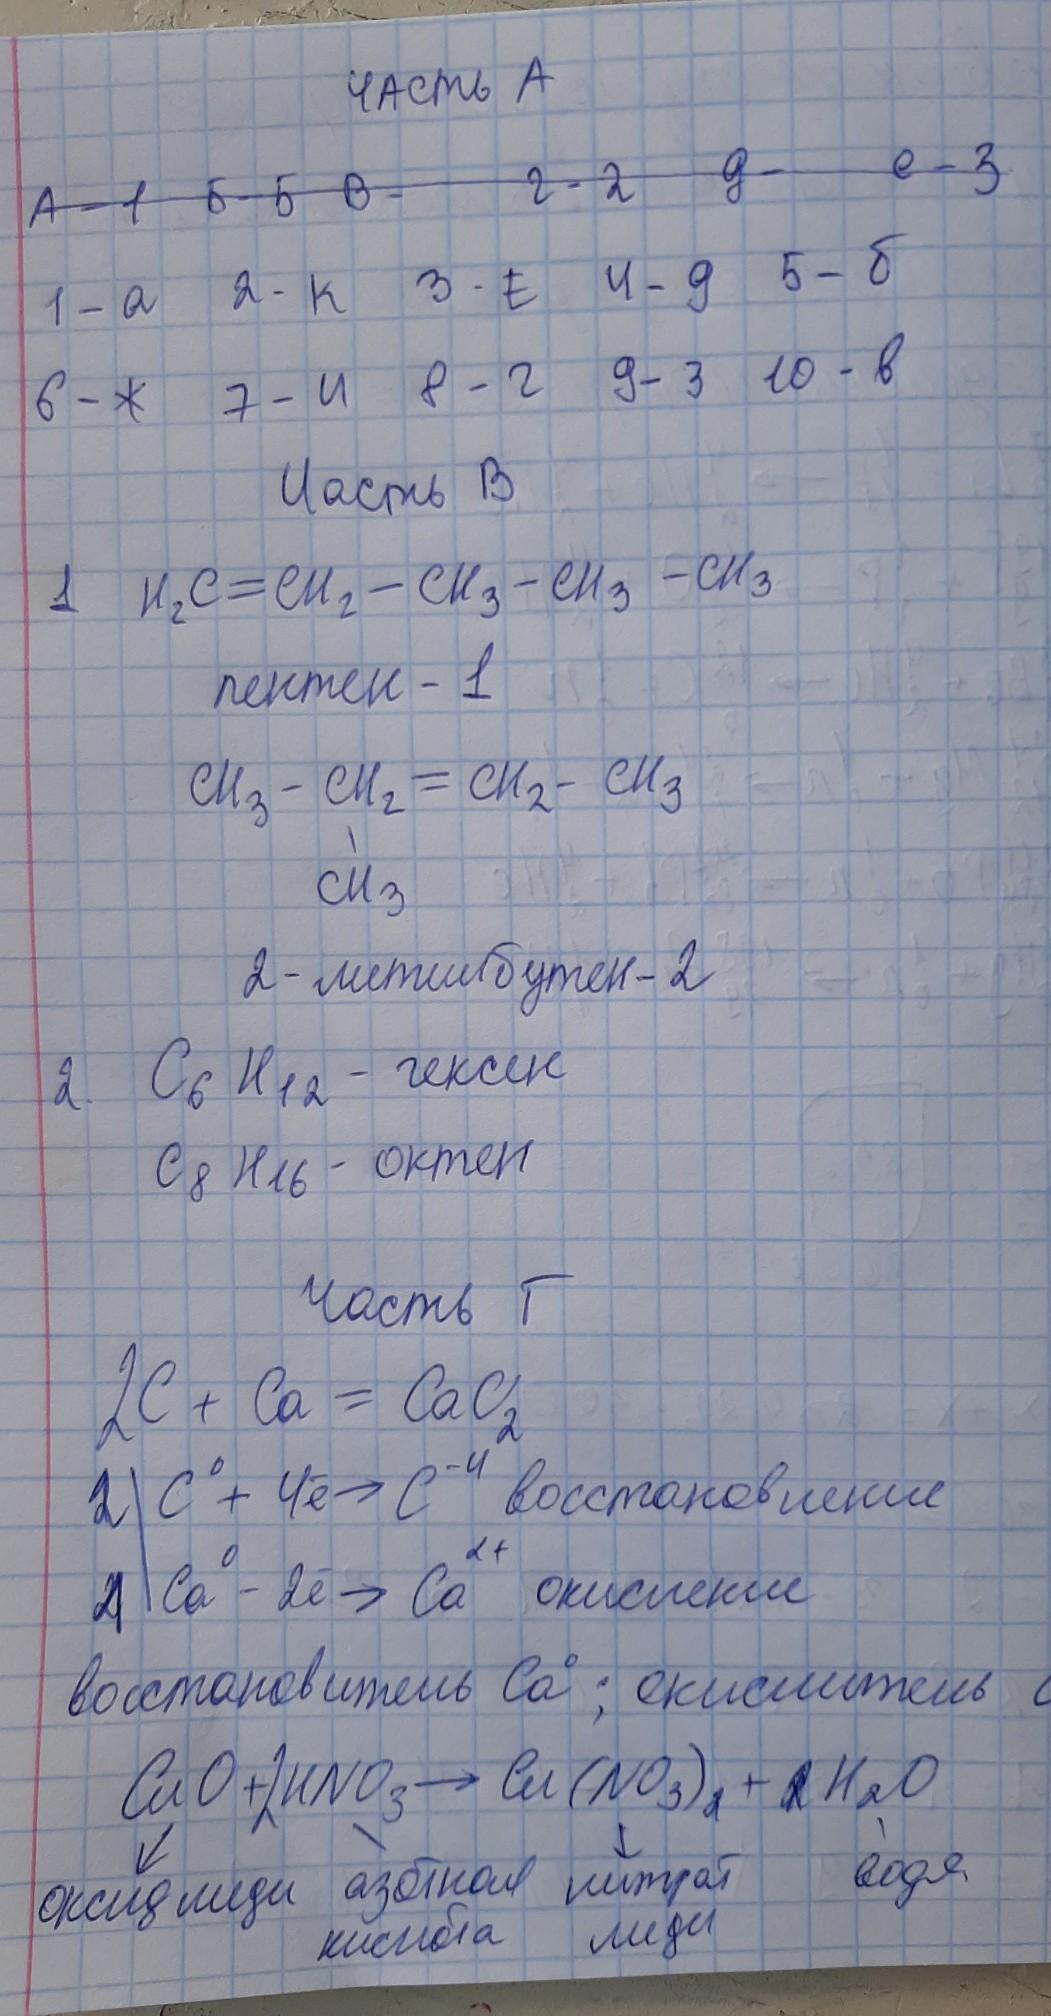 Часть А
А-1 Б-Б В- г-2 д- е-3
1-а 2-к 3-Е 4-д 5-б
6-ж 7-и 8-г 9-з 10-в
Часть В
1 H₂C=CH₂-CH₃-CH₃-CH₃
пентен-1
CH₃-CH₂=CH₂-CH₃
CH₃
2-метилбутен-2
2. C₆H₁₂-гексен
C₈H₁₆-октен
Часть Г
2C + Ca = CaC₂
2| C⁰ + 4ē → C⁻⁴ восстановление
Ca⁰ - 2ē → Ca²⁺ окисление
восстановитель Ca⁰; окислитель C
CuO + 2HNO₃ → Cu(NO₃)₂ + H₂O
оксид меди азотная нитрат вода
кислота меди